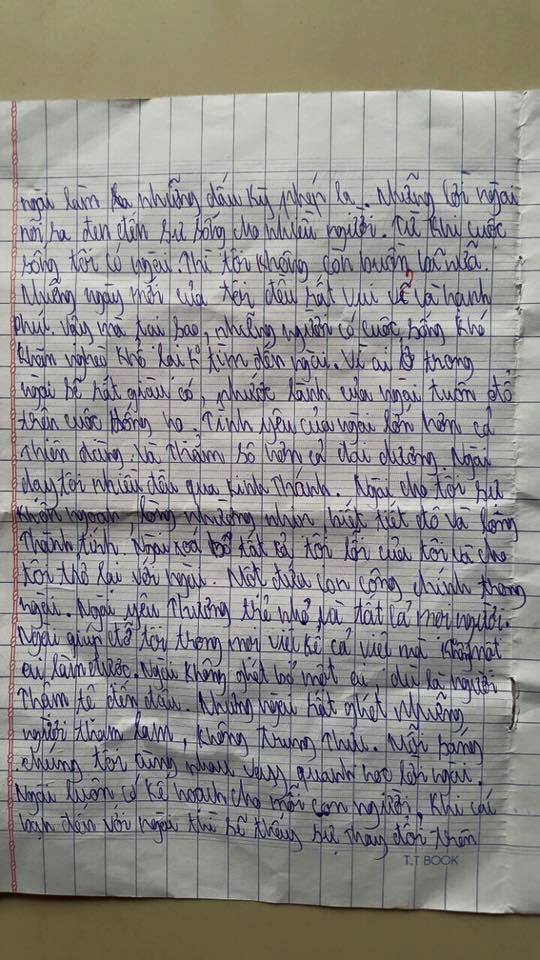 ngài làm ra những dấu kỳ phép lạ. Những lời ngài
nói ra đen đến sự sống cho nhiều người. Từ khi cuộc
sống tôi có ngài. Thì tôi không còn buồn bã nữa.
Những ngày mới của tôi đều rất vui vẽ và hạnh
phúc. Vậy mà tại sao, những người có cuộc sống khó
khăn nghèo khổ lại k tìm đến ngài. Vì ai ở trong
ngài sẽ rất giàu có, phước lành của ngài tuôn đổ
trên cuộc sống họ. Tình yêu của ngài lớn hơn cả
thiên đàng. Và thẳm sâu hơn cả đại dương. Ngài
dạy tôi nhiều điều qua kinh Thánh. Ngài cho tôi sự
khôn ngoan lòng nhường nhịn biết tiết độ và lòng
thành kính. Ngài xoá bỏ tất cả tội lỗi của tôi và cho
tôi trở lại với ngài. Một đứa con công chính trong
ngài. Ngài yêu thương trẻ nhỏ và tất cả mọi người.
Ngài giúp đỡ tôi trong mọi việc kể cả việc mà không một
ai làm được. Ngài không ghét bỏ một ai, dù là người
thậm tệ đến đâu. Nhưng ngài rất ghét những
người tham lam, không trung thực. Mỗi sáng
chúng tôi cùng nhau vây quanh học lời ngài.
Ngài luôn có kế hoạch cho mỗi con người. Khi các
bạn đến với ngài thì sẽ thấy sự thay đổi trên
T.T BOOK